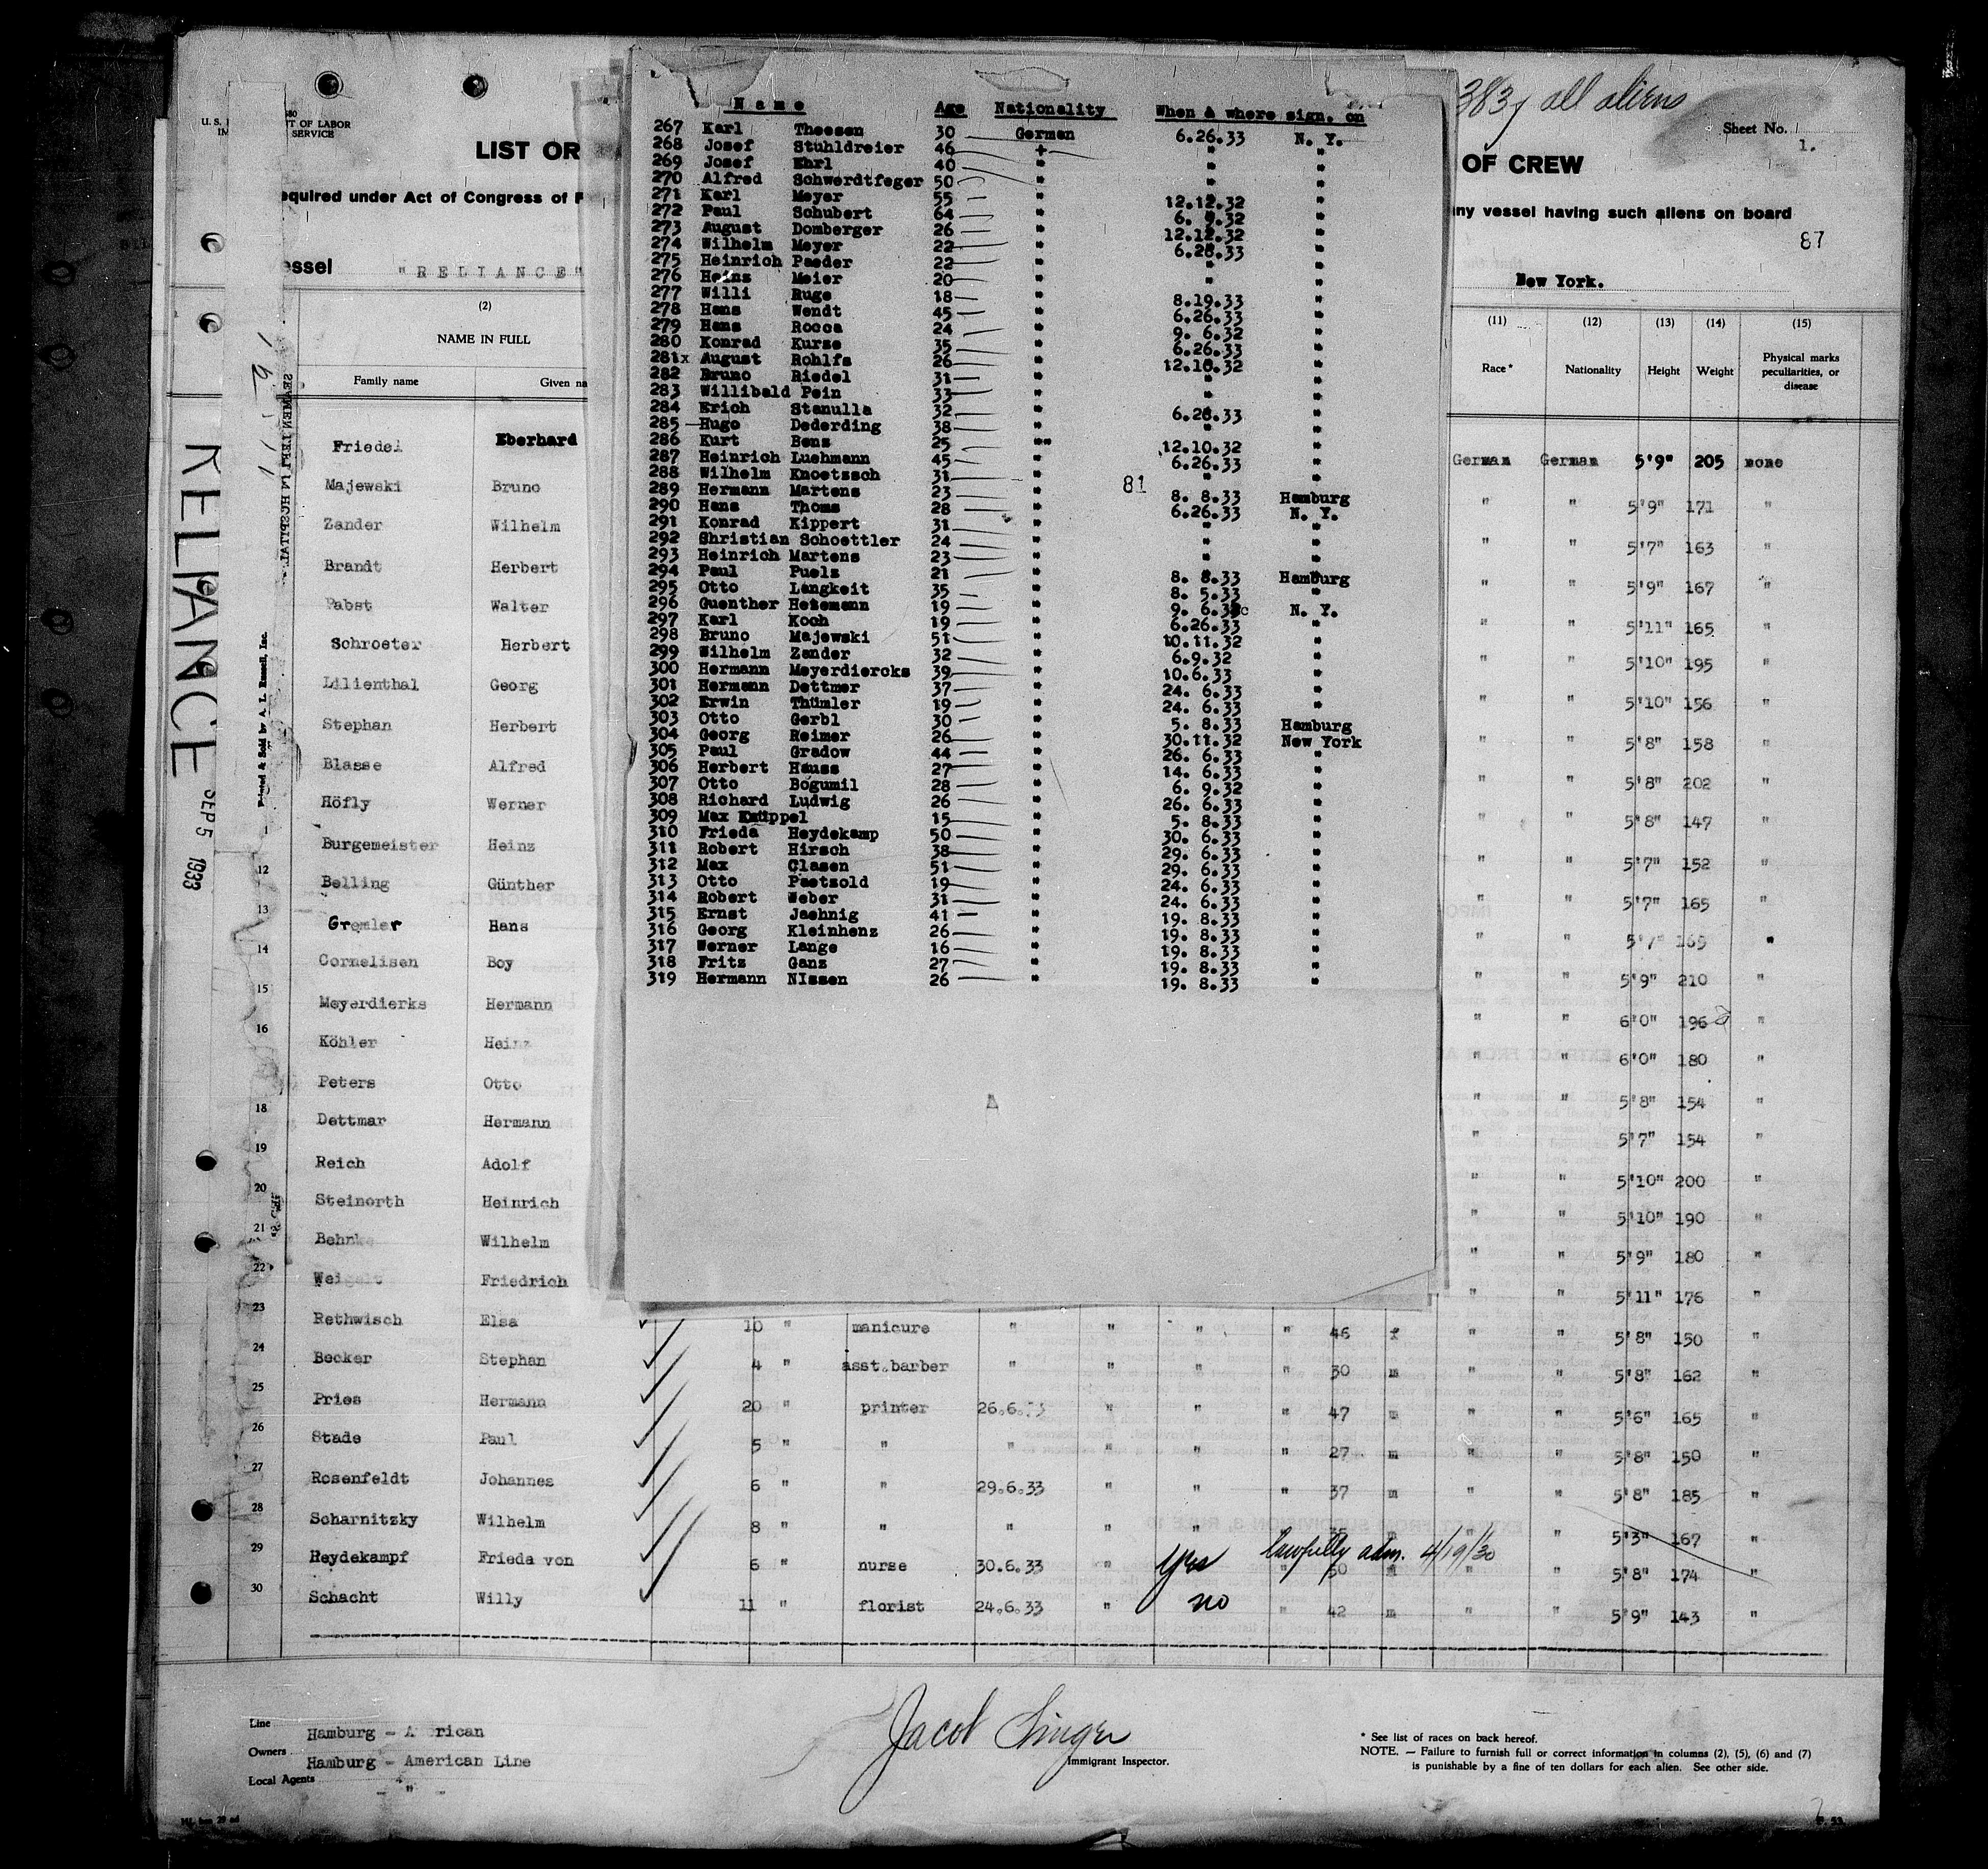 383 all aliens
Sheet No. 1.
U. S. T OF LABOR
SERVICE
LIST OR OF CREW
equired under Act of Congress of F ny vessel having such aliens on board
87
essel "RELIANCE" New York.
(2) (11) (12) (13) (14) (15)
NAME IN FULL Race* Nationality Height Weight Physical marks peculiarities, or disease
Family name Given na
RELIANCE
SEP 5 1933
Printed & Sold by A. L. Russell, Inc.
SEAMEN LEFT IN HOSPITAL
Name Age Nationality When & where sign. on
267 Karl Theesen 30 German 6.26.33 N. Y.
268 Josef Stuhldreier 46 + " "
269 Josef Ehrl 40 " " "
270 Alfred Schwerdtfeger 50 " " "
271 Karl Meyer 55 " 12.12.32 "
272 Paul Schubert 64 " 6. 9.32 "
273 August Domberger 26 " 12.12.32 "
274 Wilhelm Meyer 22 " 6.28.33 "
275 Heinrich Paeder 22 " " "
276 Heinz Meier 20 " " "
277 Willi Ruge 18 " 8.19.33 "
278 Hans Wendt 45 " 6.26.33 "
279 Hans Rocca 24 " 9. 6.32 "
280 Konrad Kurse 35 " 6.26.33 "
281x August Rohlfs 26 " 12.10.32 "
282 Bruno Riedel 31 " " "
283 Willibald Pein 33 " " "
284 Erich Stanulla 32 " 6.26.33 "
285 Hugo Dederding 38 " " "
286 Kurt Bens 25 "" 12.10.32 "
287 Heinrich Luehmann 45 " 6.26.33 "
288 Wilhelm Knoetzsch 31 " " "
81
289 Hermann Martens 23 " 8. 8.33 Hamburg
290 Hans Thoms 28 " 6.26.33 N. Y.
291 Konrad Kippert 31 " " "
292 Christian Schoettler 24 " " "
293 Heinrich Martens 23 " " "
294 Paul Puels 21 " 8. 8.33 Hamburg
295 Otto Langkeit 35 " 8. 5.33 "
296 Guenther Hetemann 19 " 9. 6. N. Y.
297 Karl Koch 19 " 6.26.33 "
298 Bruno Majewski 51 " 10.11.32 "
299 Wilhelm Zander 32 " 6.9.32 "
300 Hermann Meyerdiercks 39 " 10.6.33 "
301 Hermann Dettmer 37 " 24. 6.33 "
302 Erwin Thümler 19 " 24. 6.33 "
303 Otto Gerbl 30 " 5. 8.33 Hamburg
304 Georg Reimer 26 " 30.11.32 New York
305 Paul Gradow 44 " 26. 6.33 "
306 Herbert Hauss 27 " 14. 6.33 "
307 Otto Bogumil 28 " 6. 9.32 "
308 Richard Ludwig 26 " 26. 6.33 "
309 Max Knüppel 15 " 5. 8.33 "
310 Frieda Heydekamp 50 " 30. 6.33 "
311 Robert Hirsch 38 " 29. 6.33 "
312 Max Clasen 51 " 29. 6.33 "
313 Otto Paetzold 19 " 24. 6.33 "
314 Robert Weber 31 " 24. 6.33 "
315 Ernst Jaehnig 41 " 19. 8.33 "
316 Georg Kleinhenz 26 " 19. 8.33 "
317 Werner Lange 16 " 19. 8.33 "
318 Fritz Ganz 27 " 19. 8.33 "
319 Hermann NIssen 26 " 19. 8.33 "
Friedel Eberhard German German 5'9" 205 none
Majewski Bruno " " 5'9" 171 "
Zander Wilhelm " " 5'7" 163 "
Brandt Herbert " " 5'9" 167 "
Pabst Walter " " 5'11" 165 "
Schroeter Herbert " " 5'10" 195 "
Lilienthal Georg " " 5'10" 156 "
Stephan Herbert " " 5'8" 158 "
Blasse Alfred " " 5'8" 202 "
Höfly Werner " " 5'8" 147 "
1 Burgemeister Heinz " " 5'7" 152 "
12 Belling Günther " " 5'7" 165 "
13 Gremler Hans " " 5'7" 165 "
14 Cornelisen Boy " " 5'9" 210 "
15 Meyerdierks Hermann " " 6'0" 196 "
16 Köhler Heinz " " 6'0" 180 "
Peters Otto " " 5'8" 154 "
18 Dettmar Hermann " " 5'7" 154 "
19 Reich Adolf " " 5'10" 200 "
20 Steinorth Heinrich " " 5'10" 190 "
21 Behnke Wilhelm " " 5'9" 180 "
22 Weigelt Friedrich " " 5'11" 176 "
23 Rethwisch Elsa 10 " manicure " " " " 46 f " " 5'8" 150 "
24 Becker Stephan 4 " asst.barber " " " " 30 m " " 5'8" 162 "
25 Pries Hermann 20 " printer 26.6.33 " " " 47 m " " 5'6" 165 "
26 Stade Paul 5 " " " " " " 27 m " " 5'8" 150 "
27 Rosenfeldt Johannes 6 " " 29.6.33 " " " 37 m " " 5'8" 185 "
28 Scharnitzky Wilhelm 8 " " " " " " 35 m " " 5'3" 167 "
29 Heydekampf Frieda von 6 " nurse 30.6.33 " yes lawfully adm. 4/19/30 50 " " 5'8" 174
30 Schacht Willy 11 " florist 24.6.33 " no " 42 m " " 5'9" 143 "
Line Hamburg - A rican
Owners Hamburg - American Line
Local Agents "
Jacob Singer
Immigrant Inspector.
* See list of races on back hereof.
NOTE. — Failure to furnish full or correct information in columns (2), (5), (6) and (7)
is punishable by a fine of ten dollars for each alien. See other side.